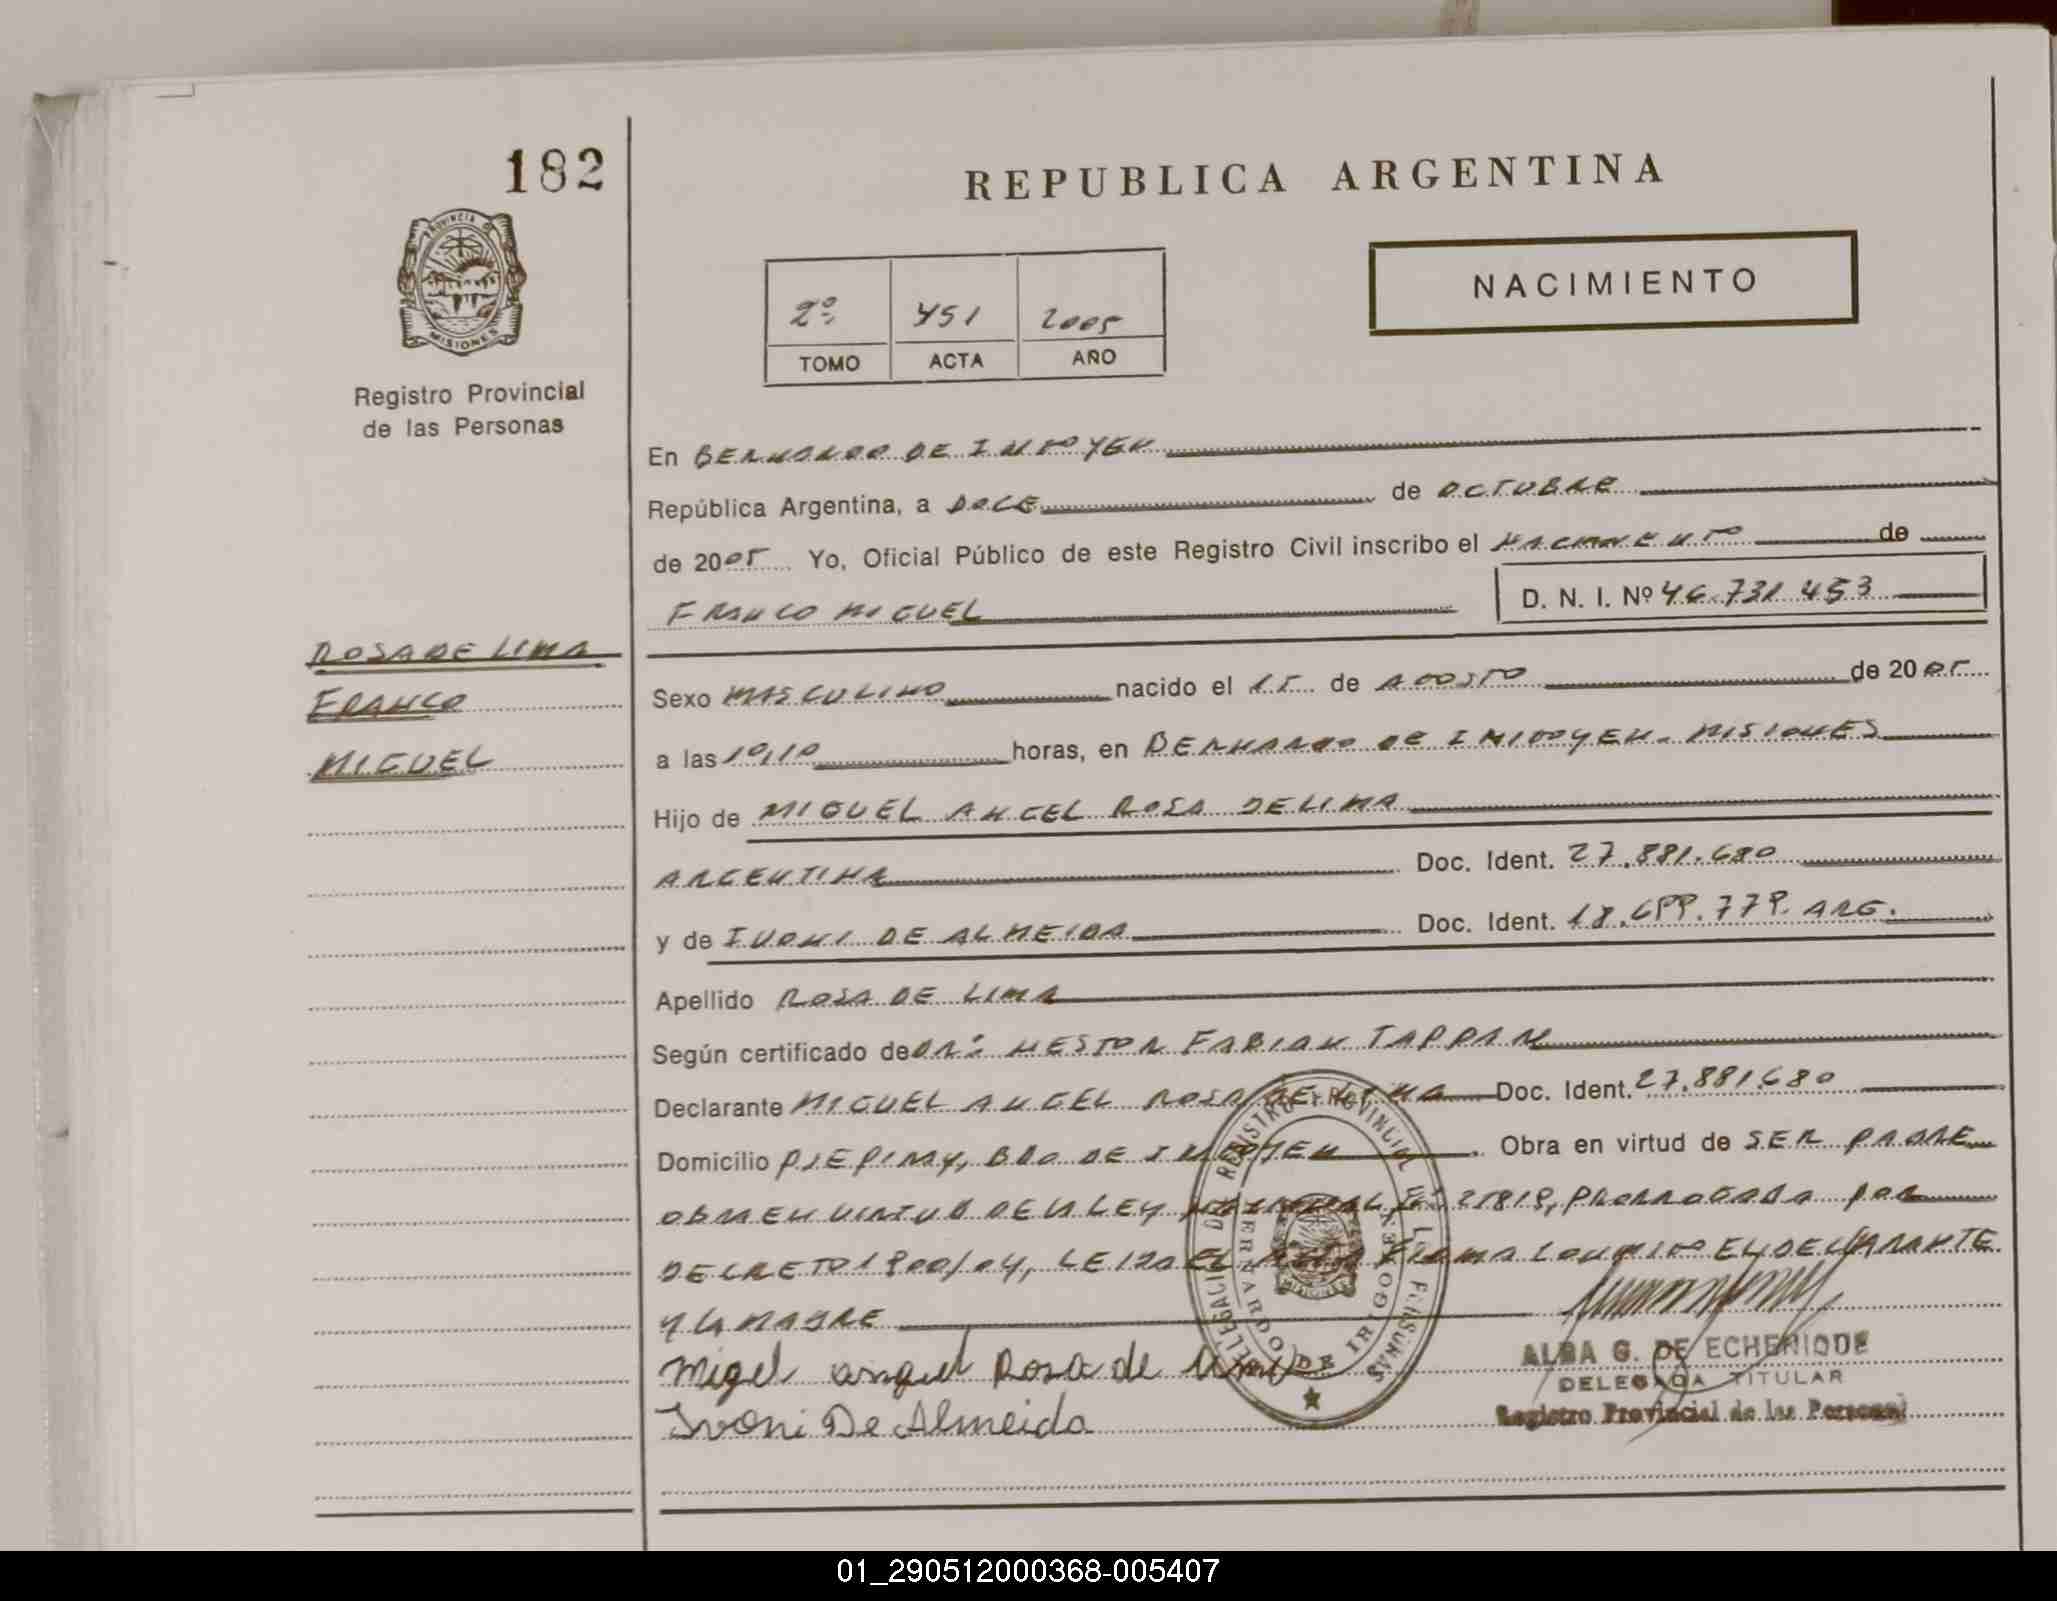 182
REPUBLICA ARGENTINA
PROVINCIA
MISIONES
Registro Provincial
de las Personas
2º 451 2005
TOMO ACTA AÑO
NACIMIENTO
En BERNARDO DE IRIGOYEN
República Argentina, a DOCE de OCTUBRE
de 2005 Yo, Oficial Público de este Registro Civil inscribo el NACIMIENTO de
FRANCO MIGUEL D. N. I. Nº 46.731.453
ROSA DE LIMA
FRANCO
MIGUEL
Sexo MASCULINO nacido el 15 de AGOSTO de 2005
a las 10,10 horas, en BERNARDO DE IRIGOYEN - MISIONES
Hijo de MIGUEL ANGEL ROSA DE LIMA
ARGENTINA Doc. Ident. 27.881.680
y de IVONI DE ALMEIDA Doc. Ident. 18.699.779 ARG.
Apellido ROSA DE LIMA
Según certificado de DR: NESTOR FABIAN TAPPAR
Declarante MIGUEL ANGEL ROSA DE LIMA Doc. Ident. 27.881.680
Domicilio BDO DE IRIGOYEN. Obra en virtud de SER PADRE
OBRA EN VIRTUD DE LA LEY NACIONAL Nº 25819, PRORROGADA POR
DECRETO 1900/04, LEIDA EL ACTA FIRMA CONMIGO EL DECLARANTE
Y LA MADRE
Migel angel Rosa de Lima
Ivoni De Almeida
DELEGACION DE REGISTRO PROVINCIAL DE LAS PERSONAS
BERNARDO DE IRIGOYEN
ALBA G. DE ECHENIQUE
DELEGADA TITULAR
Registro Provincial de las Personas
01_290512000368-005407